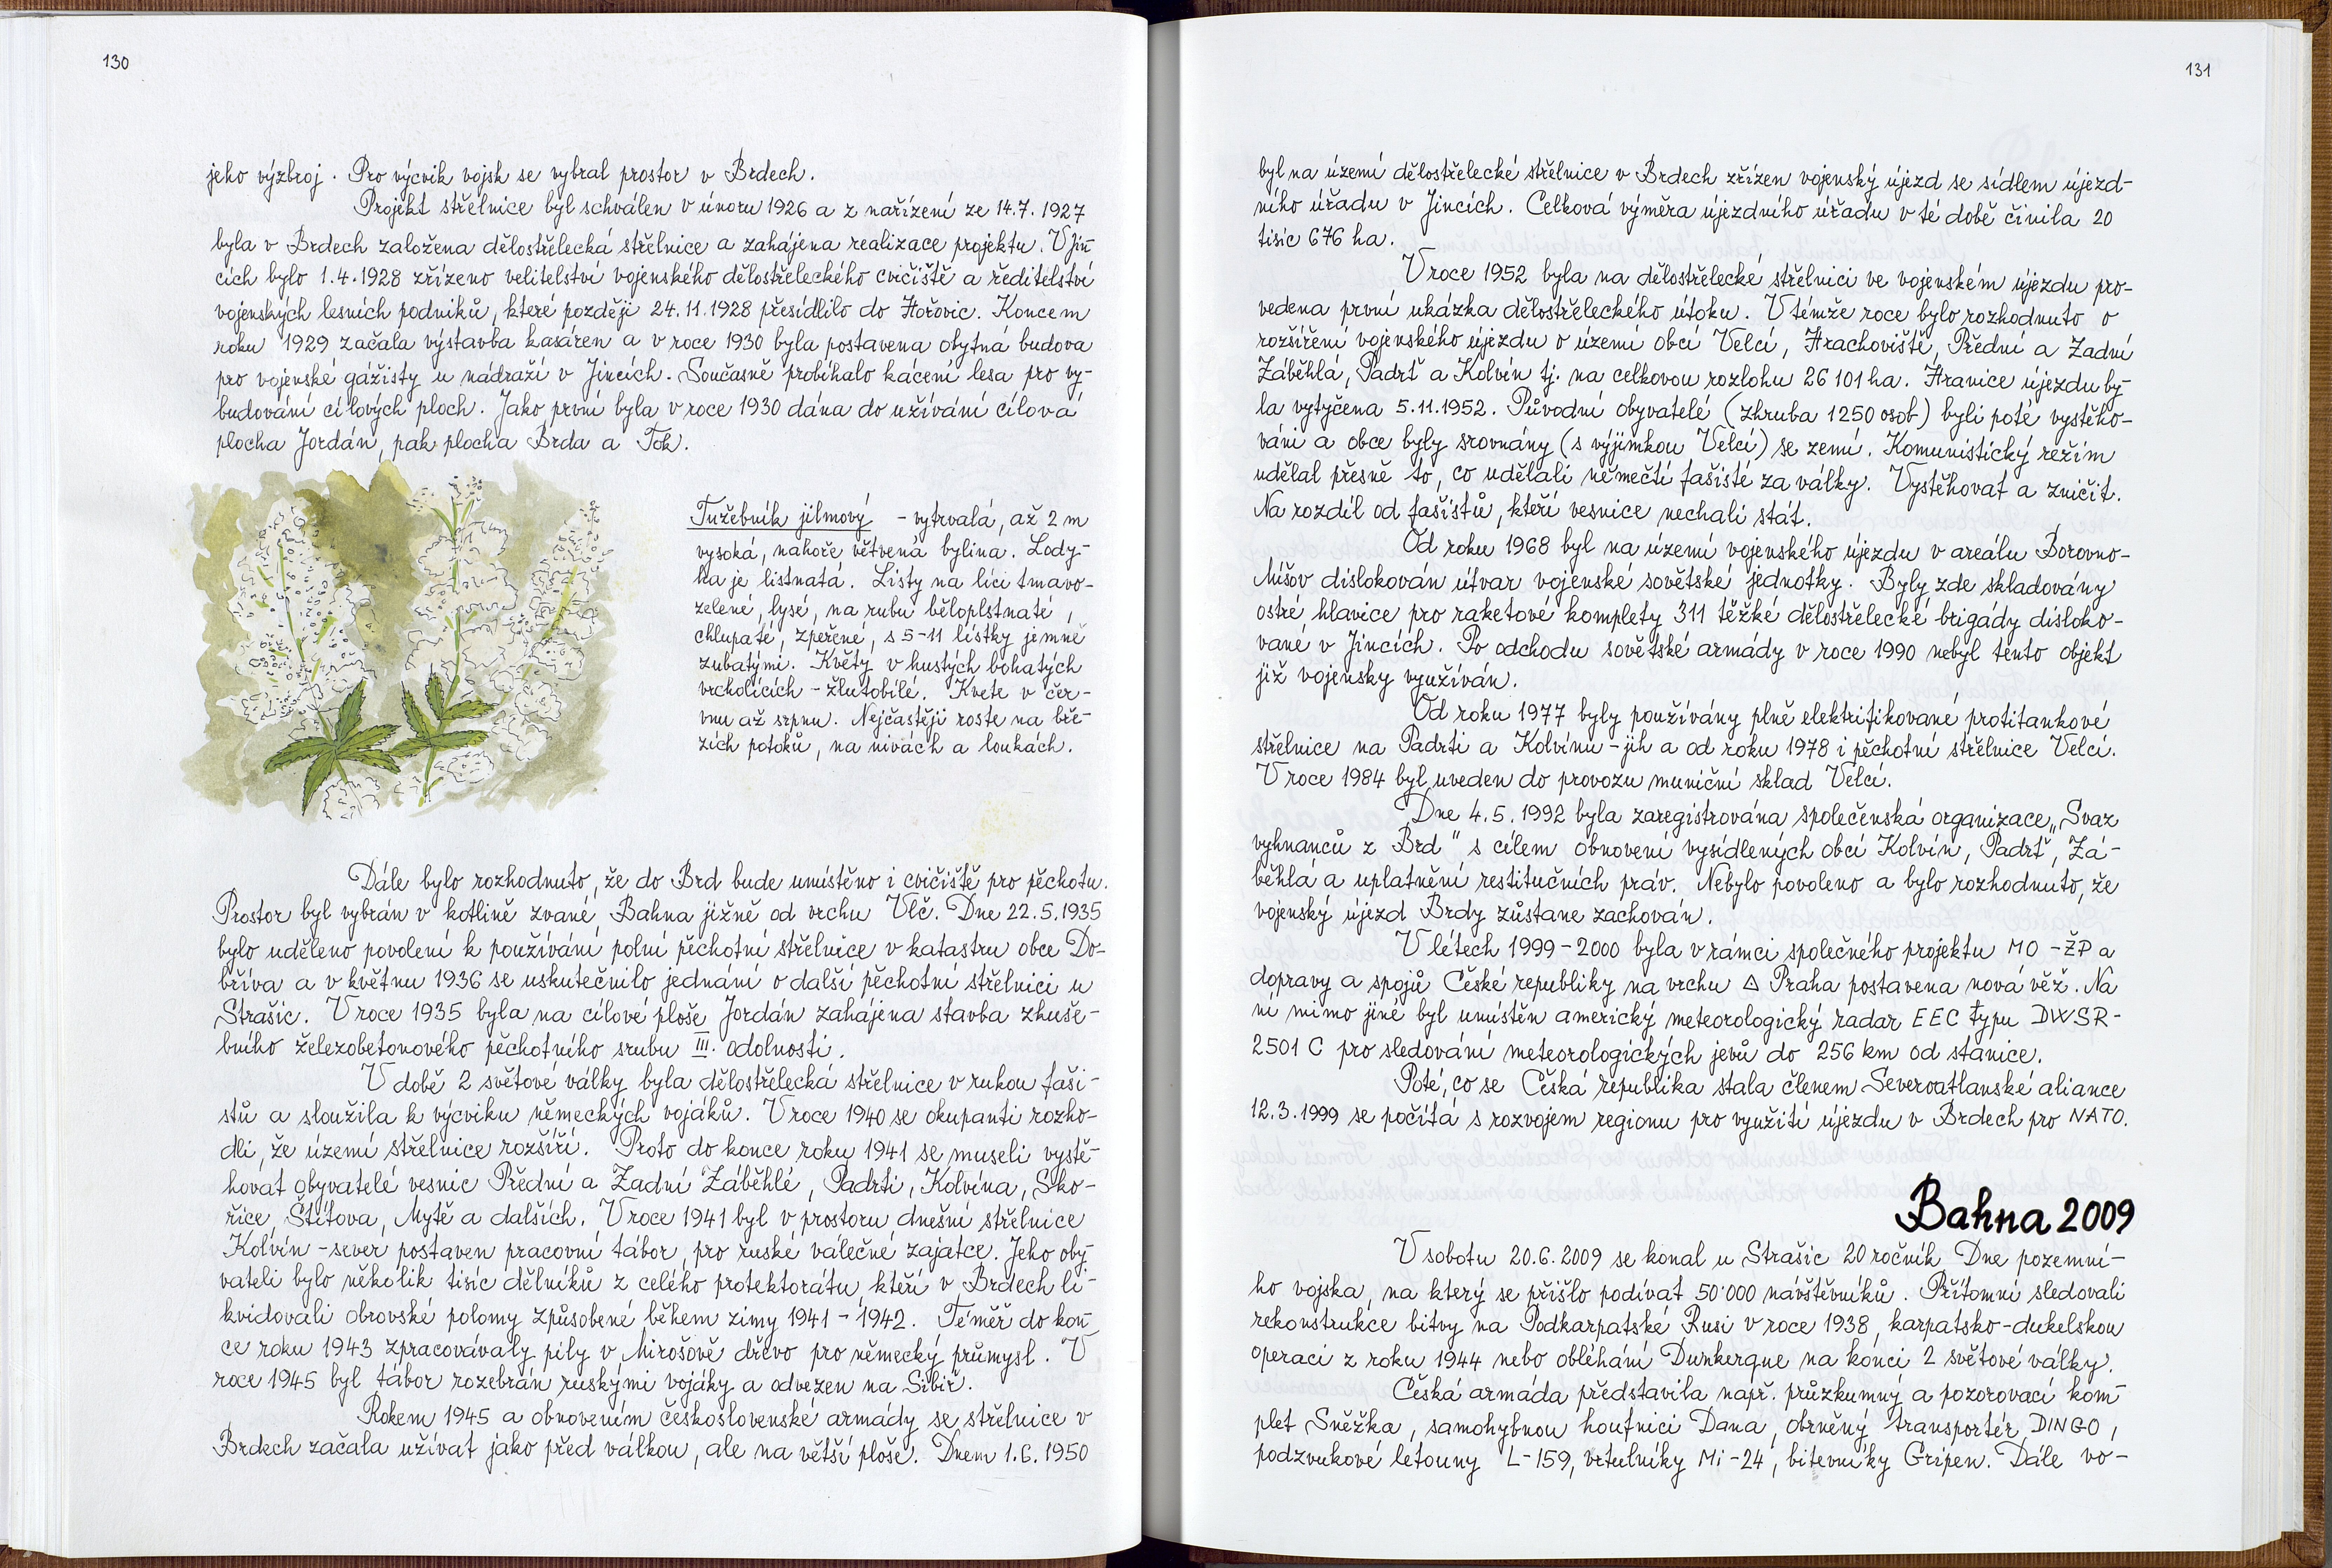 130
jeho výzbroj. Pro výcvik vojsk se vybral prostor v Brdech.
Projekt střelnice byl schválen v únoru 1926 a z nařízení ze 14.7.1927
byla v Brdech založena dělostřelecká střelnice a zahájena realizace projektu. V Jin-
cích bylo 1.4.1928 zřízeno velitelství vojenského dělostřeleckého cvičiště a ředitelství
vojenských lesních podniků, které později 24.11.1928 přesídlilo do Hořovic. Koncem
roku 1929 začala výstavba kasáren a v roce 1930 byla postavena obytná budova
pro vojenské gážisty u nádraží v Jincích. Současně probíhalo kácení lesa pro vy-
budování cílových ploch. Jako první byla v roce 1930 dána do užívání cílová
plocha Jordán, pak plocha Brda a Tok.
Tužebník jilmový - vytrvalá, až 2 m
vysoká, nahoře větvená bylina. Lody-
ha je listnatá. Listy na líci tmavo-
zelené, lysé, na rubu běloplstnaté,
chlupaté, zpeřené, s 5-11 lístky jemně
zubatými. Květy v hustých bohatých
vrcholících - žlutobílé. Kvete v čer-
vnu až srpnu. Nejčastěji roste na bře-
zích potoků, na nivách a loukách.
Dále bylo rozhodnuto, že do Brd bude umístěno i cvičiště pro pěchotu.
Prostor byl vybrán v kotlině zvané Bahna jižně od vrchu Vlč. Dne 22.5.1935
bylo uděleno povolení k používání polní pěchotní střelnice v katastru obce Do-
bříva a v květnu 1936 se uskutečnilo jednání o další pěchotní střelnici u
Strašic. V roce 1935 byla na cílové ploše Jordán zahájena stavba zkuše-
bního železobetonového pěchotního srubu III. odolnosti.
V době 2 světové války byla dělostřelecká střelnice v rukou faši-
stů a sloužila k výcviku německých vojáků. V roce 1940 se okupanti rozho-
dli, že území střelnice rozšíří. Proto do konce roku 1941 se museli vystě-
hovat obyvatelé vesnic Přední a Zadní Záběhlé, Padrti, Kolvína, Sko-
řice, Štítova, Mytě a dalších. V roce 1941 byl v prostoru dnešní střelnice
Kolvín - sever postaven pracovní tábor pro ruské válečné zajatce. Jeho oby-
vateli bylo několik tisíc dělníků z celého protektorátu, kteří v Brdech li-
kvidovali obrovské polomy způsobené během zimy 1941 - 1942. Téměř do kon-
ce roku 1943 zpracovávaly pily v Mirošově dřevo pro německý průmysl. V
roce 1945 byl tábor rozebrán ruskými vojáky a odvezen na Sibiř.
Rokem 1945 a obnovením československé armády se střelnice v
Brdech začala užívat jako před válkou, ale na větší ploše. Dnem 1.6.1950
131
byl na území dělostřelecké střelnice v Brdech zřízen vojenský újezd se sídlem újezd-
ního úřadu v Jincích. Celková výměra újezdního úřadu v té době činila 20
tisíc 676 ha.
V roce 1952 byla na dělostřelecké střelnici ve vojenském újezdu pro-
vedena první ukázka dělostřeleckého útoku. V témže roce bylo rozhodnuto o
rozšíření vojenského újezdu o území obcí Velcí, Hrachoviště, Přední a Zadní
Záběhlá, Padrť a Kolvín tj. na celkovou rozlohu 26 101 ha. Hranice újezdu by-
la vytyčena 5.11.1952. Původní obyvatelé (zhruba 1250 osob) byli poté vystěho-
váni a obce byly srovnány (s výjimkou Velcí) se zemí. Komunistický režim
udělal přesně to, co udělali němečtí fašisté za války. Vystěhovat a zničit.
Na rozdíl od fašistů, kteří vesnice nechali stát.
Od roku 1968 byl na území vojenského újezdu v areálu Borovno-
Míšov dislokován útvar vojenské sovětské jednotky. Byly zde skladovány
ostré hlavice pro raketové komplety 311 těžké dělostřelecké brigády disloko-
vané v Jincích. Po odchodu sovětské armády v roce 1990 nebyl tento objekt
již vojensky využíván.
Od roku 1977 byly používány plně elektrifikované protitankové
střelnice na Padrti a Kolvínu - jih a od roku 1978 i pěchotní střelnice Velcí.
V roce 1984 byl uveden do provozu muniční sklad Velcí.
Dne 4.5.1992 byla zaregistrována společenská organizace „Svaz
vyhnanců z Brd" s cílem obnovení vysídlených obcí Kolvín, Padrť, Zá-
běhlá a uplatnění restitučních práv. Nebylo povoleno a bylo rozhodnuto, že
vojenský újezd Brdy zůstane zachován.
V létech 1999 - 2000 byla v rámci společného projektu MO - ŽP a
dopravy a spojů České republiky na vrchu △ Praha postavena nová věž. Na
ní mimo jiné byl umístěn americký meteorologický radar EEC typu DWSR-
2501 C pro sledování meteorologických jevů do 256 km od stanice.
Poté, co se Česká republika stala členem Severoatlanské aliance
12.3.1999 se počítá s rozvojem regionu pro využití újezdu v Brdech pro NATO.
Bahna 2009
V sobotu 20.6.2009 se konal u Strašic 20 ročník Dne pozemní-
ho vojska, na který se přišlo podívat 50'000 návštěvníků. Přítomní sledovali
rekonstrukce bitvy na Podkarpatské Rusi v roce 1938, karpatsko-dukelskou
operaci z roku 1944 nebo obléhání Dunkerque na konci 2 světové války.
Česká armáda představila např. průzkumný a pozorovací kom-
plet Sněžka, samohybnou houfnici Dana, obrněný transportér DINGO,
podzvukové letouny L-159, vrtulníky Mi-24, bitevníky Gripen. Dále vo-